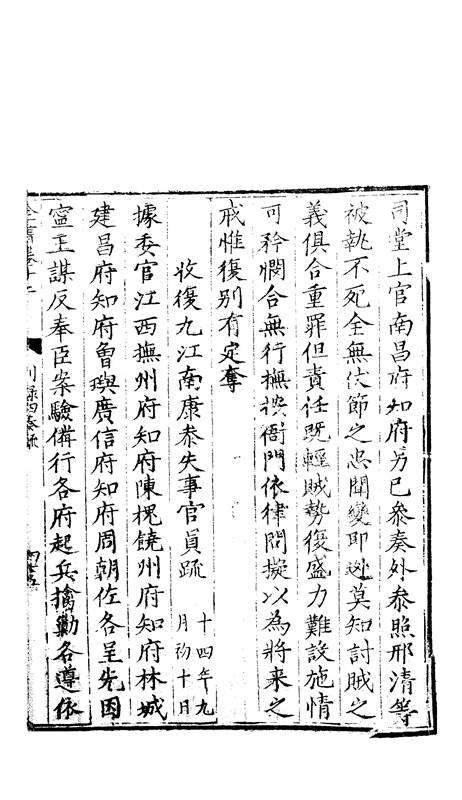 司堂上官南昌府知府另已參奏外叅照邢清等
被執不死全無伏節之忠聞變即逃莫知討賊之
義俱合重罪但責任既輕賊勢復盛力難設施情
可矜憫合無行撫按衙門依律問擬以為將來之
戒惟復別有定奪
收復九江南康叅失事官員疏 十四年九
月初十日
據委官江西撫州府知府陳槐饒州府知府林城
建昌府知府曾璵廣信府知府周朝佐各呈先因
寧王謀反奉臣案驗備行各府起兵擒勦各遵依